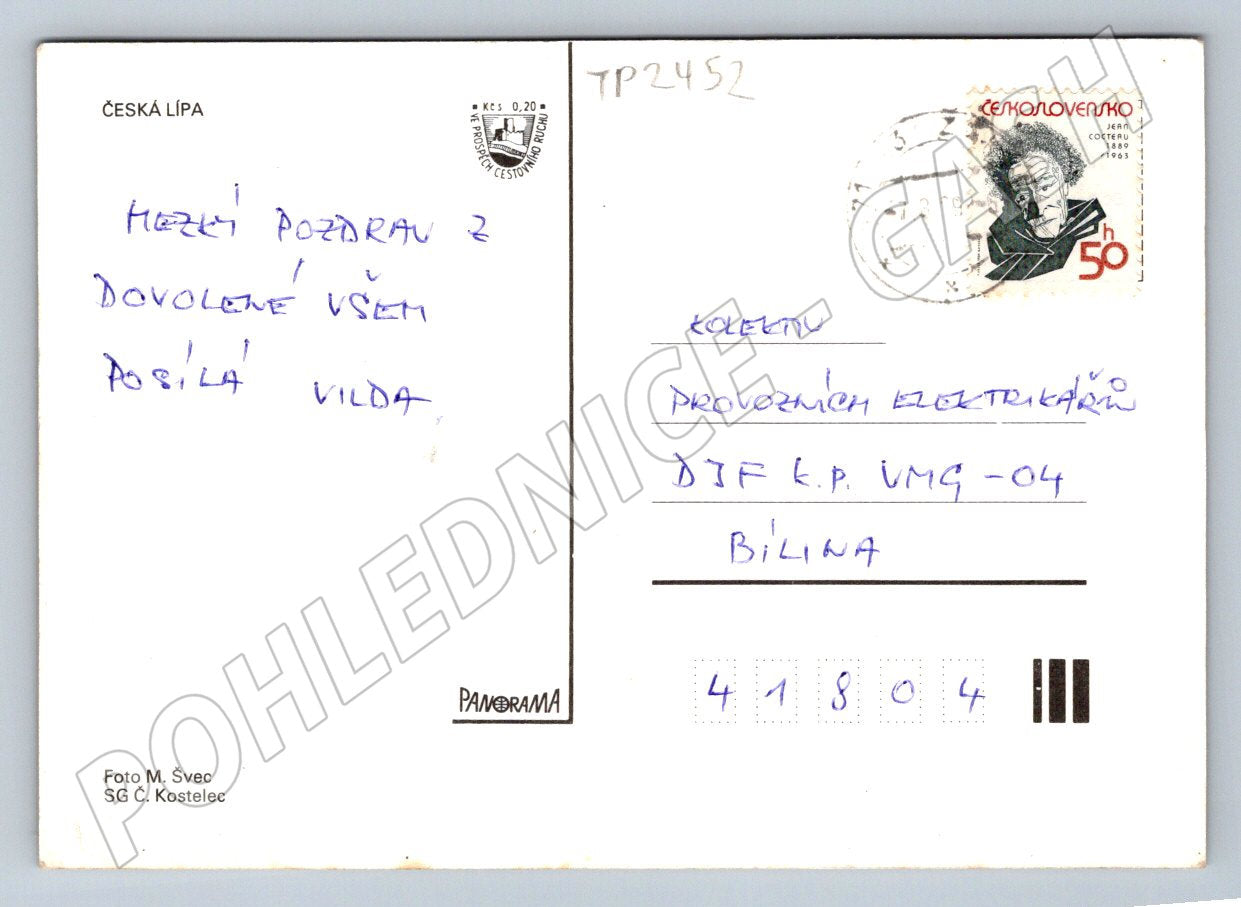 ČESKÁ LÍPA
Kčs 0,20
VE PROSPĚCH CESTOVNÍHO RUCHU
HEZKÝ POZDRAV Z
DOVOLENÉ VŠEM
POSÍLÁ VILDA
PANORAMA
Foto M. Švec
SG Č. Kostelec
TP2452
ČESKOSLOVENSKO
JEAN
COCTEAU
1889
1963
50 h
KOLEKTIV
PROVOZNÍCH ELEKTRIKÁŘŮ
DJF k.p. VMG-04
BÍLINA
41804
POHLEDNICE - GASH